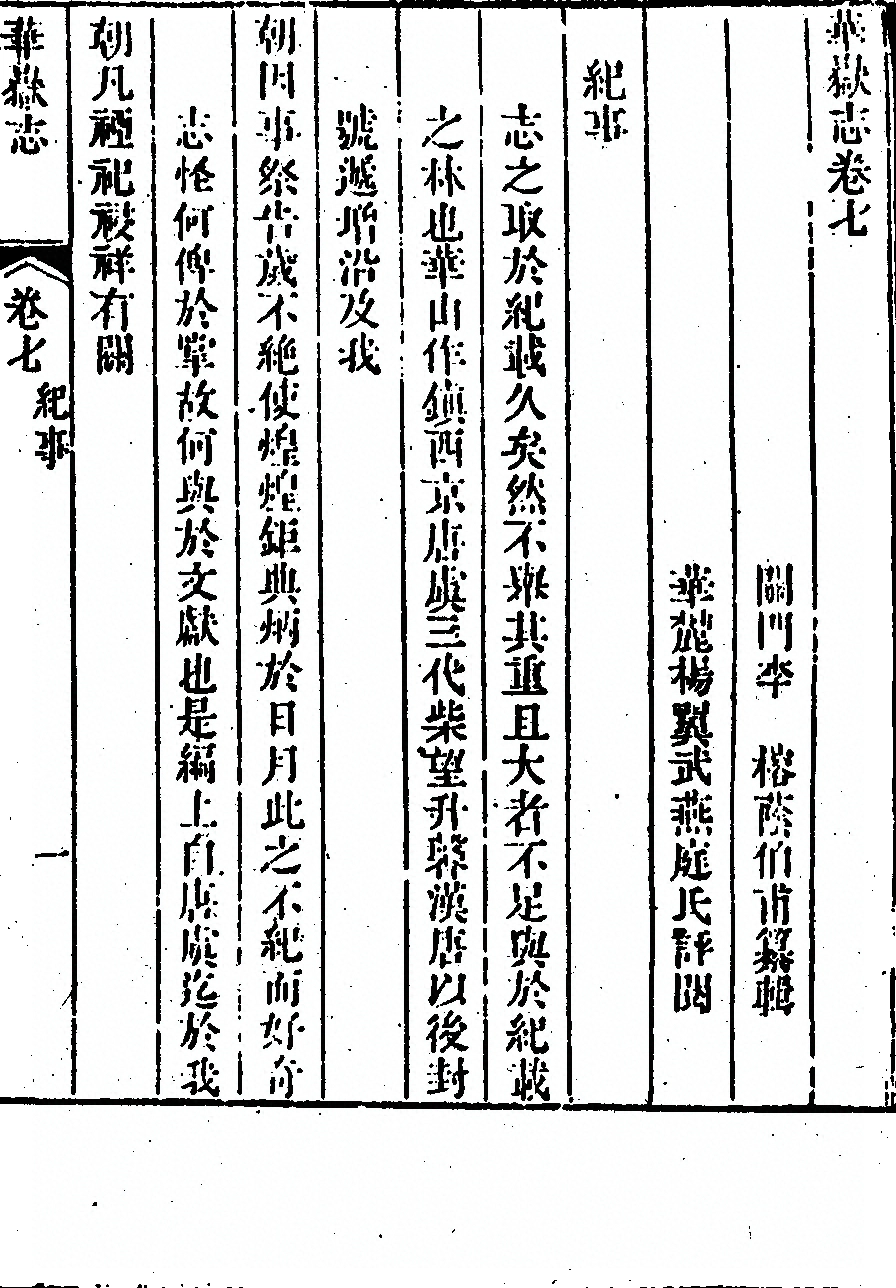 華嶽志卷七
關門李　榕蔭伯甫纂輯
華麓楊翼武燕庭氏評閱
紀事
志之取於紀載久矣然不舉其重且大者不足與於紀載
之林也華山作鎮西京唐虞三代柴望升馨漢唐以後封
號遞增沿及我
朝因事祭告歲不絶使煌煌鉅典炳於日月此之不紀而好奇
志怪何俾於掌故何與於文獻也是編上自唐虞迄於我
朝凡禋祀祲祥有關
華嶽志
卷七
紀事
一